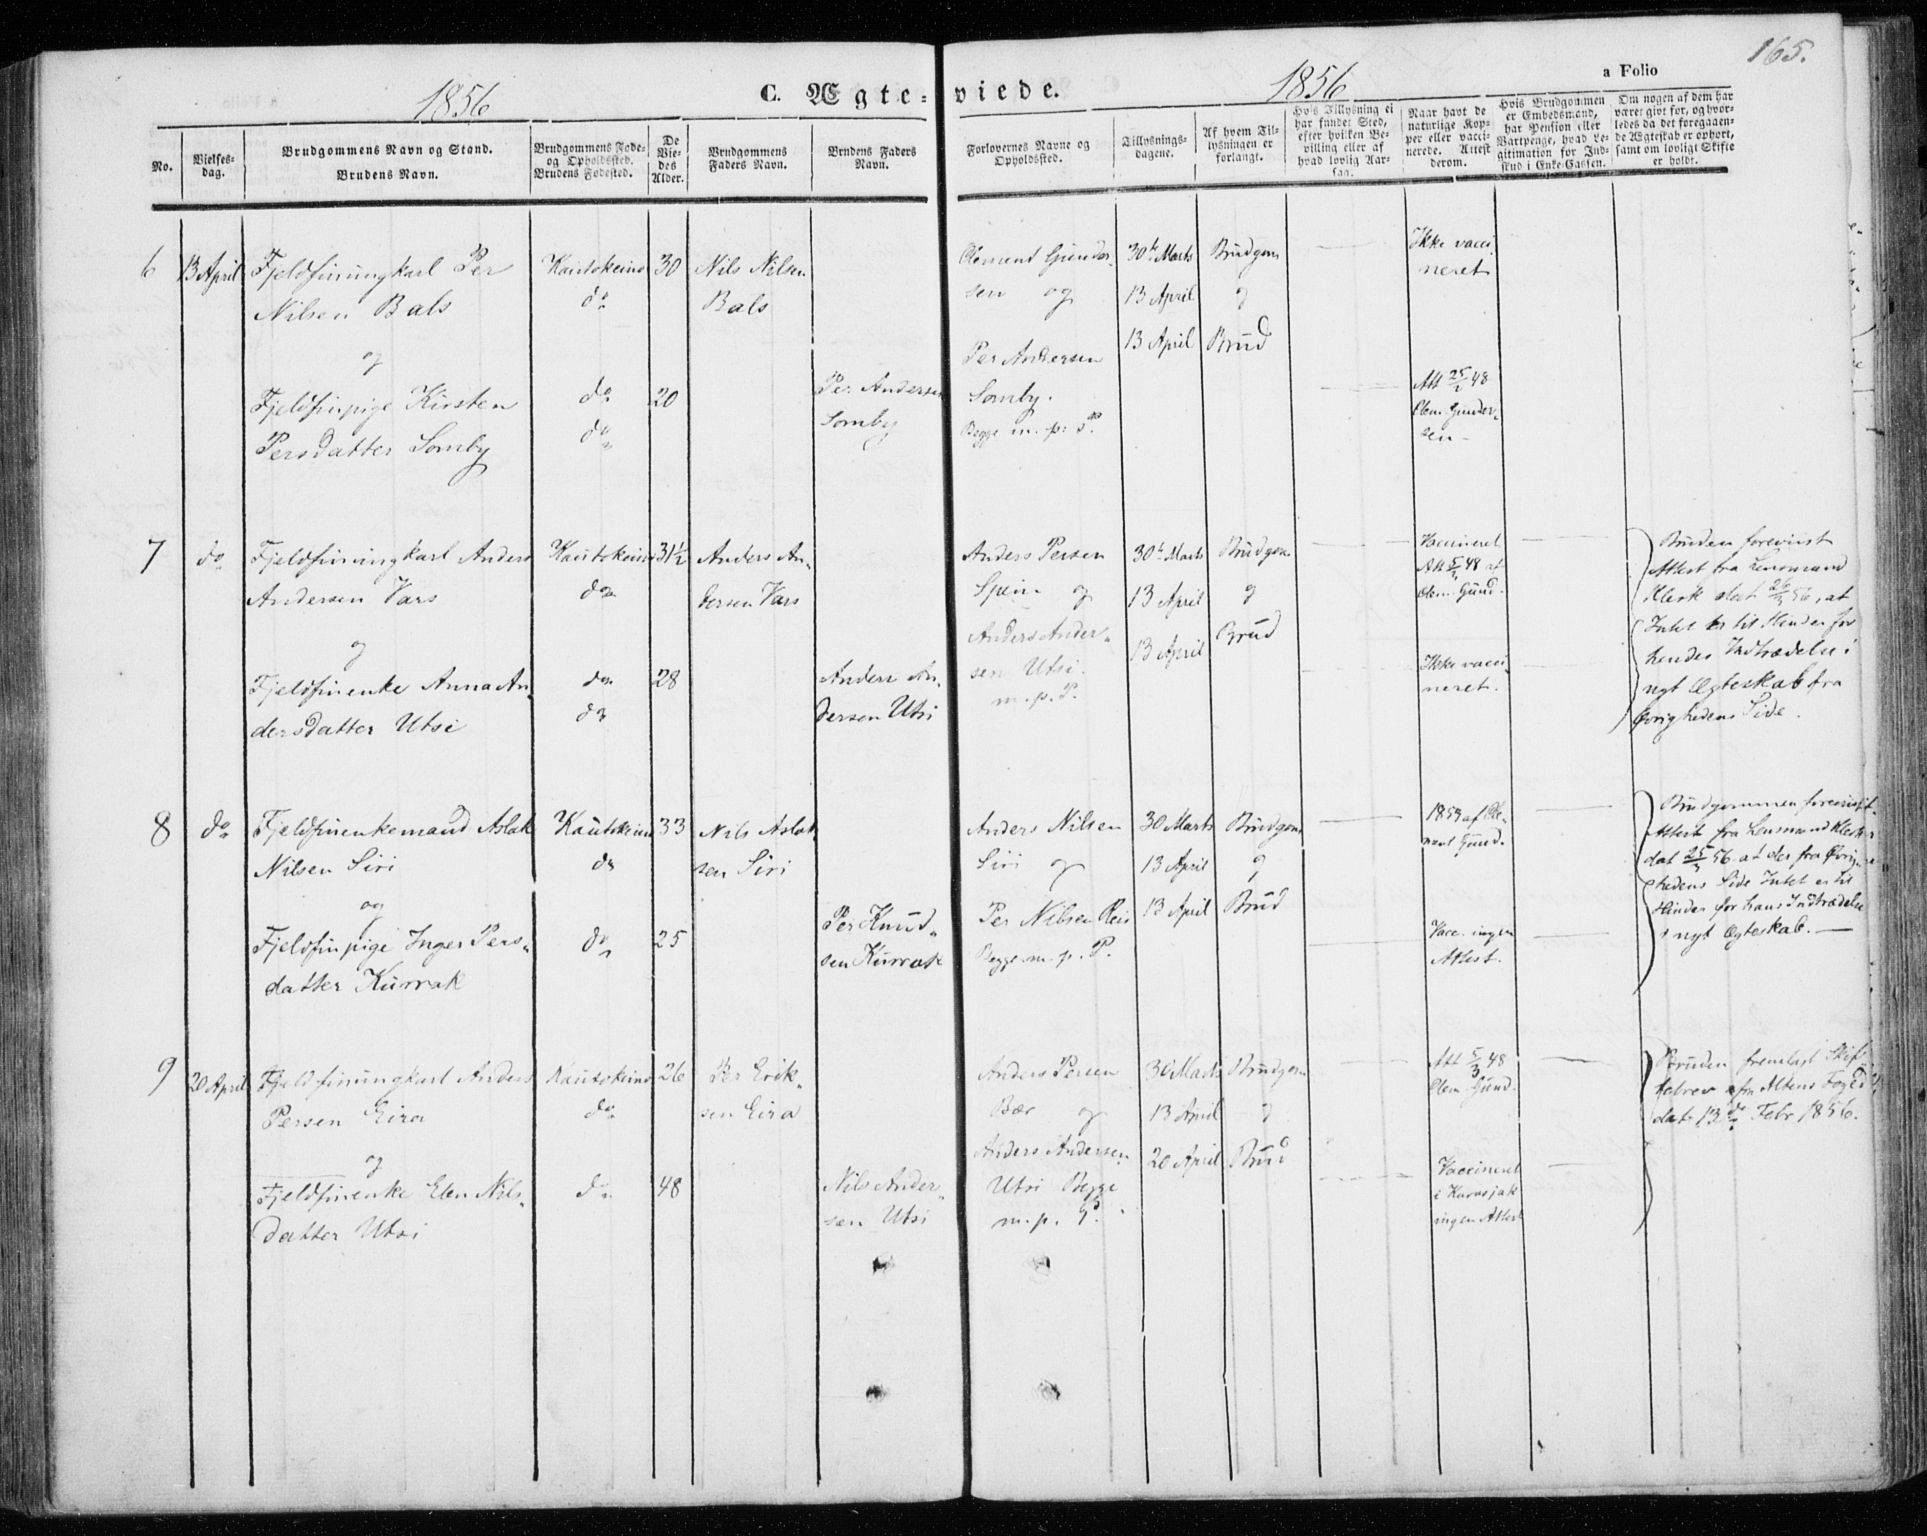 165.
1856
C. Ægte-viede.
1856
a Folio
No.
Vielses-
dag.
Brudgommens Navn og Stand.
Brudens Navn.
Brudgommens Føde-
og Opholdssted.
Brudens Fødested.
De
Vie-
des
Alder.
Brudgommens
Faders Navn.
Brudens Faders
Navn.
Forlovernes Navne og
Opholdssted.
Tillysnings-
dagene.
Af hvem Til-
lysningen er
forlangt.
Hvis Tillysning ei
har fundet Sted,
efter hvilken Be-
villing eller af
hvad lovlig Aar-
sag.
Naar havt de
naturlige Kop-
per eller vacci-
nerede. Attest
derom.
Hvis Brudgommen
er Embedsmand,
har Pension eller
Vartpenge, hvad Le-
gitimation for Ind-
skud i Enke-Cassen.
Om nogen af dem har
været givt før, og hvor-
ledes da det foregaaen-
de Ægteskab er ophørt,
samt om lovligt Skifte
er holdt.
6
13 April
Fjeldfinungkarl Per
Nilsen Bals
og
Fjeldfinpige Kirsten
Persdatter Somby
Kautokeino
do
do
do
30
20
Nils Nilsen
Bals
Per Andersen
Somby
Clement Gunder-
sen og
Per Andersen
Somby.
Begge m. p. P.
30te Marts
13 April
13 April
Brudgom
og
Brud
Ikke vacci
neret
Att 25/2 48
Clem. Gunder-
sen
7
do
Fjeldfinungkarl Anders
Andersen Vars
og
Fjeldfinenke Anna An-
dersdatter Utsi
Kautokeino
do
do
do
31½
28
Anders An-
dersen Vars
Anders An-
dersen Utsi
Anders Persen
Spein og
Anders Ander-
sen Utsi.
m. p. P.
30te Marts
13 April
13 April
Brudgom
og
Brud
Vaccineret
Att 5/3 48 af
Clem. Gund.
Ikke vacci
neret.
Bruden foreviist
Attest fra Lensmand
Klerk dat 26/3 56, at
Intet er til Hinder for
hendes Indtrædelse i
nyt Ægteskab fra
Øvrighedens Side.
8
do
Fjeldfinenkemand Aslak
Nilsen Siri
og
Fjeldfinpige Inger Pers-
datter Kurrak
Kautokeino
do
do
33
25
Nils Aslak
sen Siri
Per Knud-
sen Kurrak
Anders Nilsen
Siri og
Per Nilsen Rein
Begge m. p. P.
30 Marts
13 April
13 April
Brudgom
og
Brud
1853 af Cle-
ment Gund.
Vacc. ingen
Attest.
Brudgommen foreviist
Attest fra Lensmand Klerk
dat 25/3 56 at der fra Øvrig-
hedens Side Intet er til
Hinder for hans Indtrædelse
i nyt Ægteskab.
9
20 April
Fjeldfinungkarl Anders
Persen Eira
og
Fjeldfinenke Elen Nils-
datter Utsi
Kautokeino
do
do
26
48
Per Erik-
sen Eira
Nils Ander-
sen Utsi
Anders Persen
Bær og
Anders Andersen
Utsi Begge
m. p. P.
30 Marts
13 April
20 April
Brudgom
og
Brud
Att 5/3 48
Clem. Gund.
Vaccineret
i Karasjok
ingen Attest
Bruden fremlagt Skif-
tebrev fra Altens Foged
dat 13de Febr 1856.